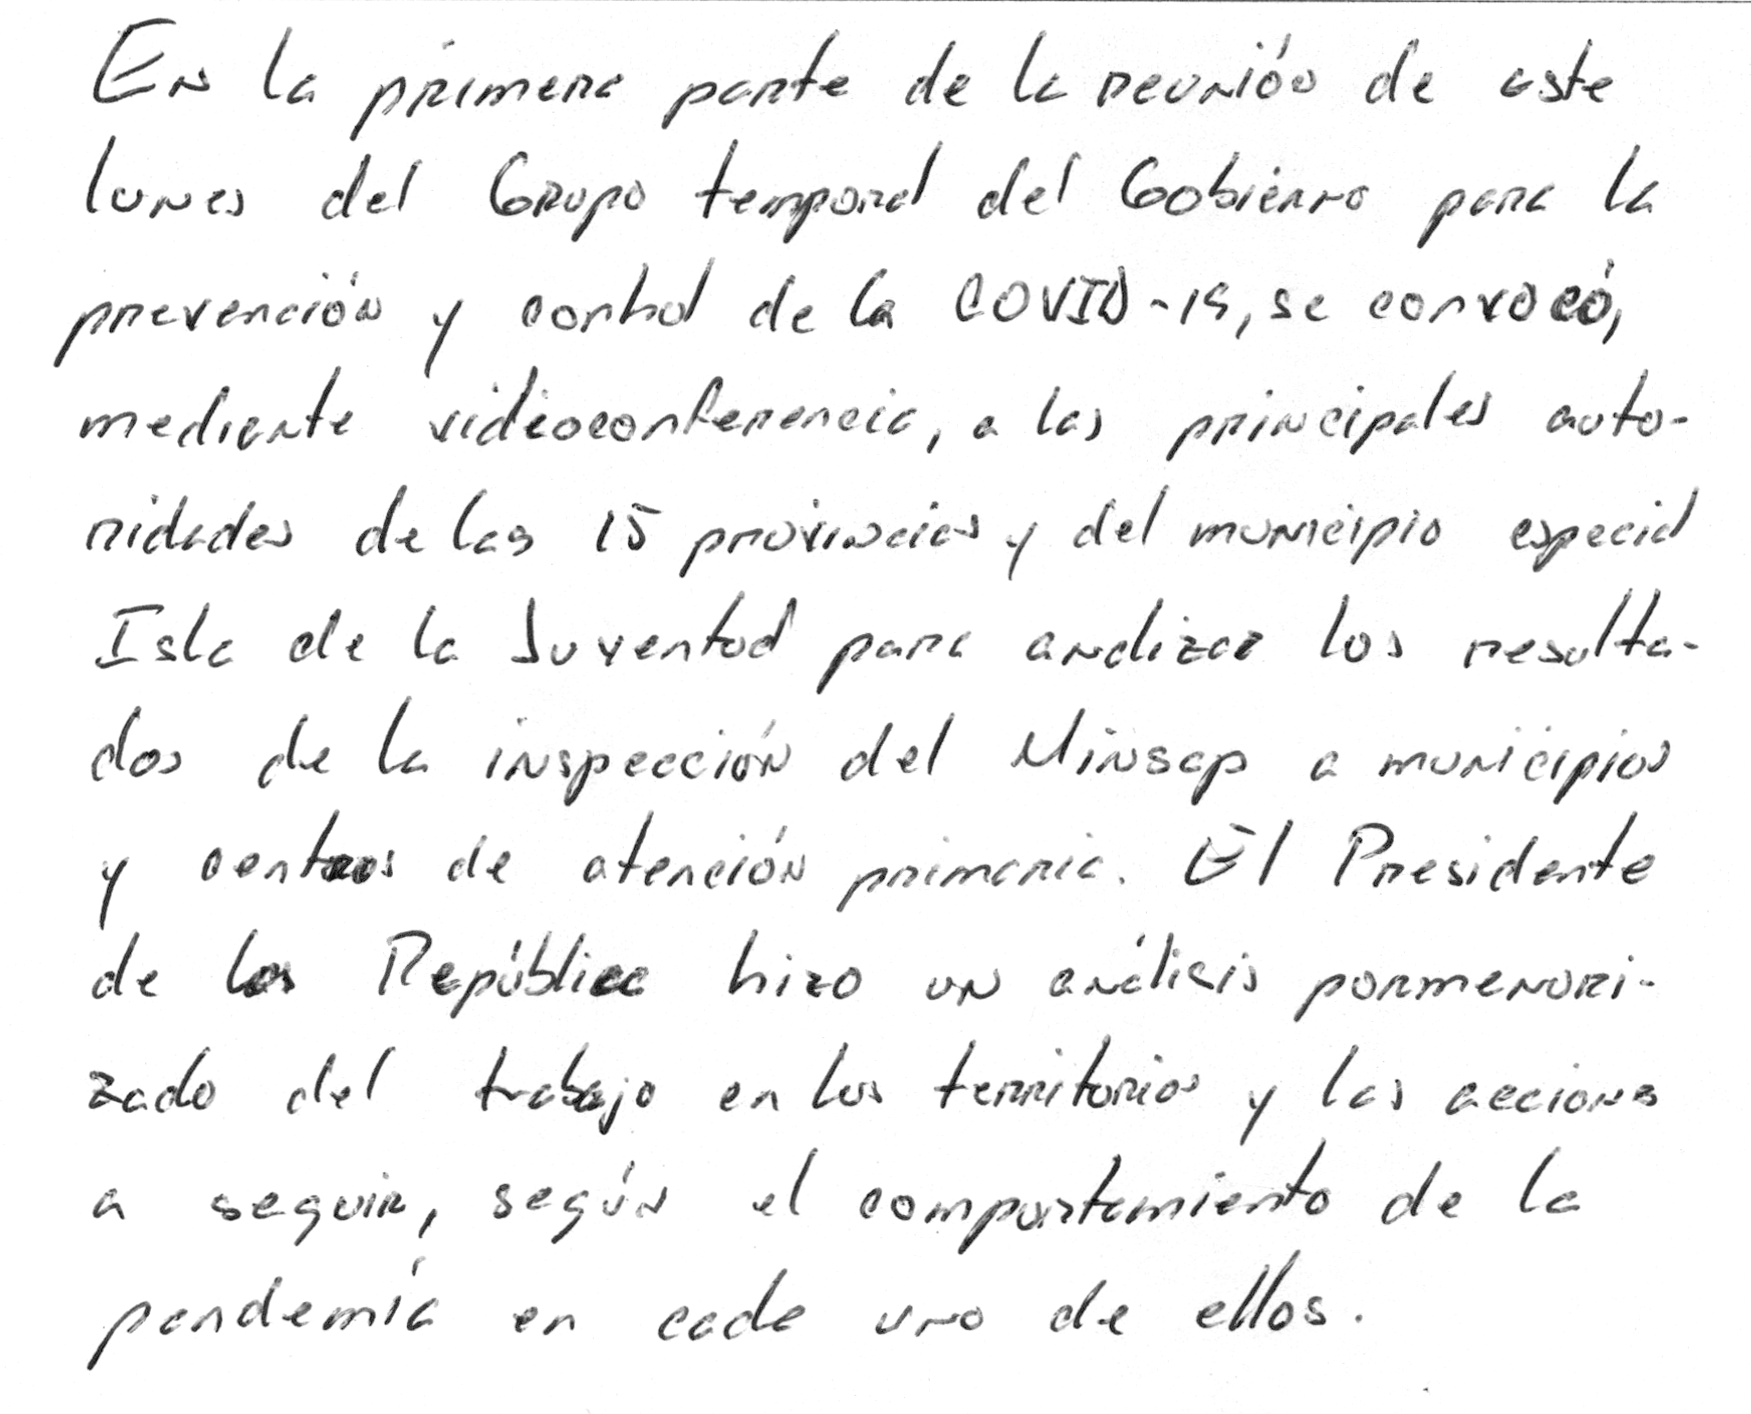 En la primera parte de la reunión de este
lunes del Grupo temporal del Gobierno para la
prevención y control de la COVID-19, se convocó,
mediante videoconferencia, a las principales auto-
ridades de las 15 provincias y del municipio especial
Isla de la Juventud para analizar los resulta-
dos de la inspección del Minsap a municipios
y centros de atención primaria. El Presidente
de la República hizo un análisis pormenori-
zado del trabajo en los territorios y las acciones
a seguir, según el comportamiento de la
pandemia en cada uno de ellos.